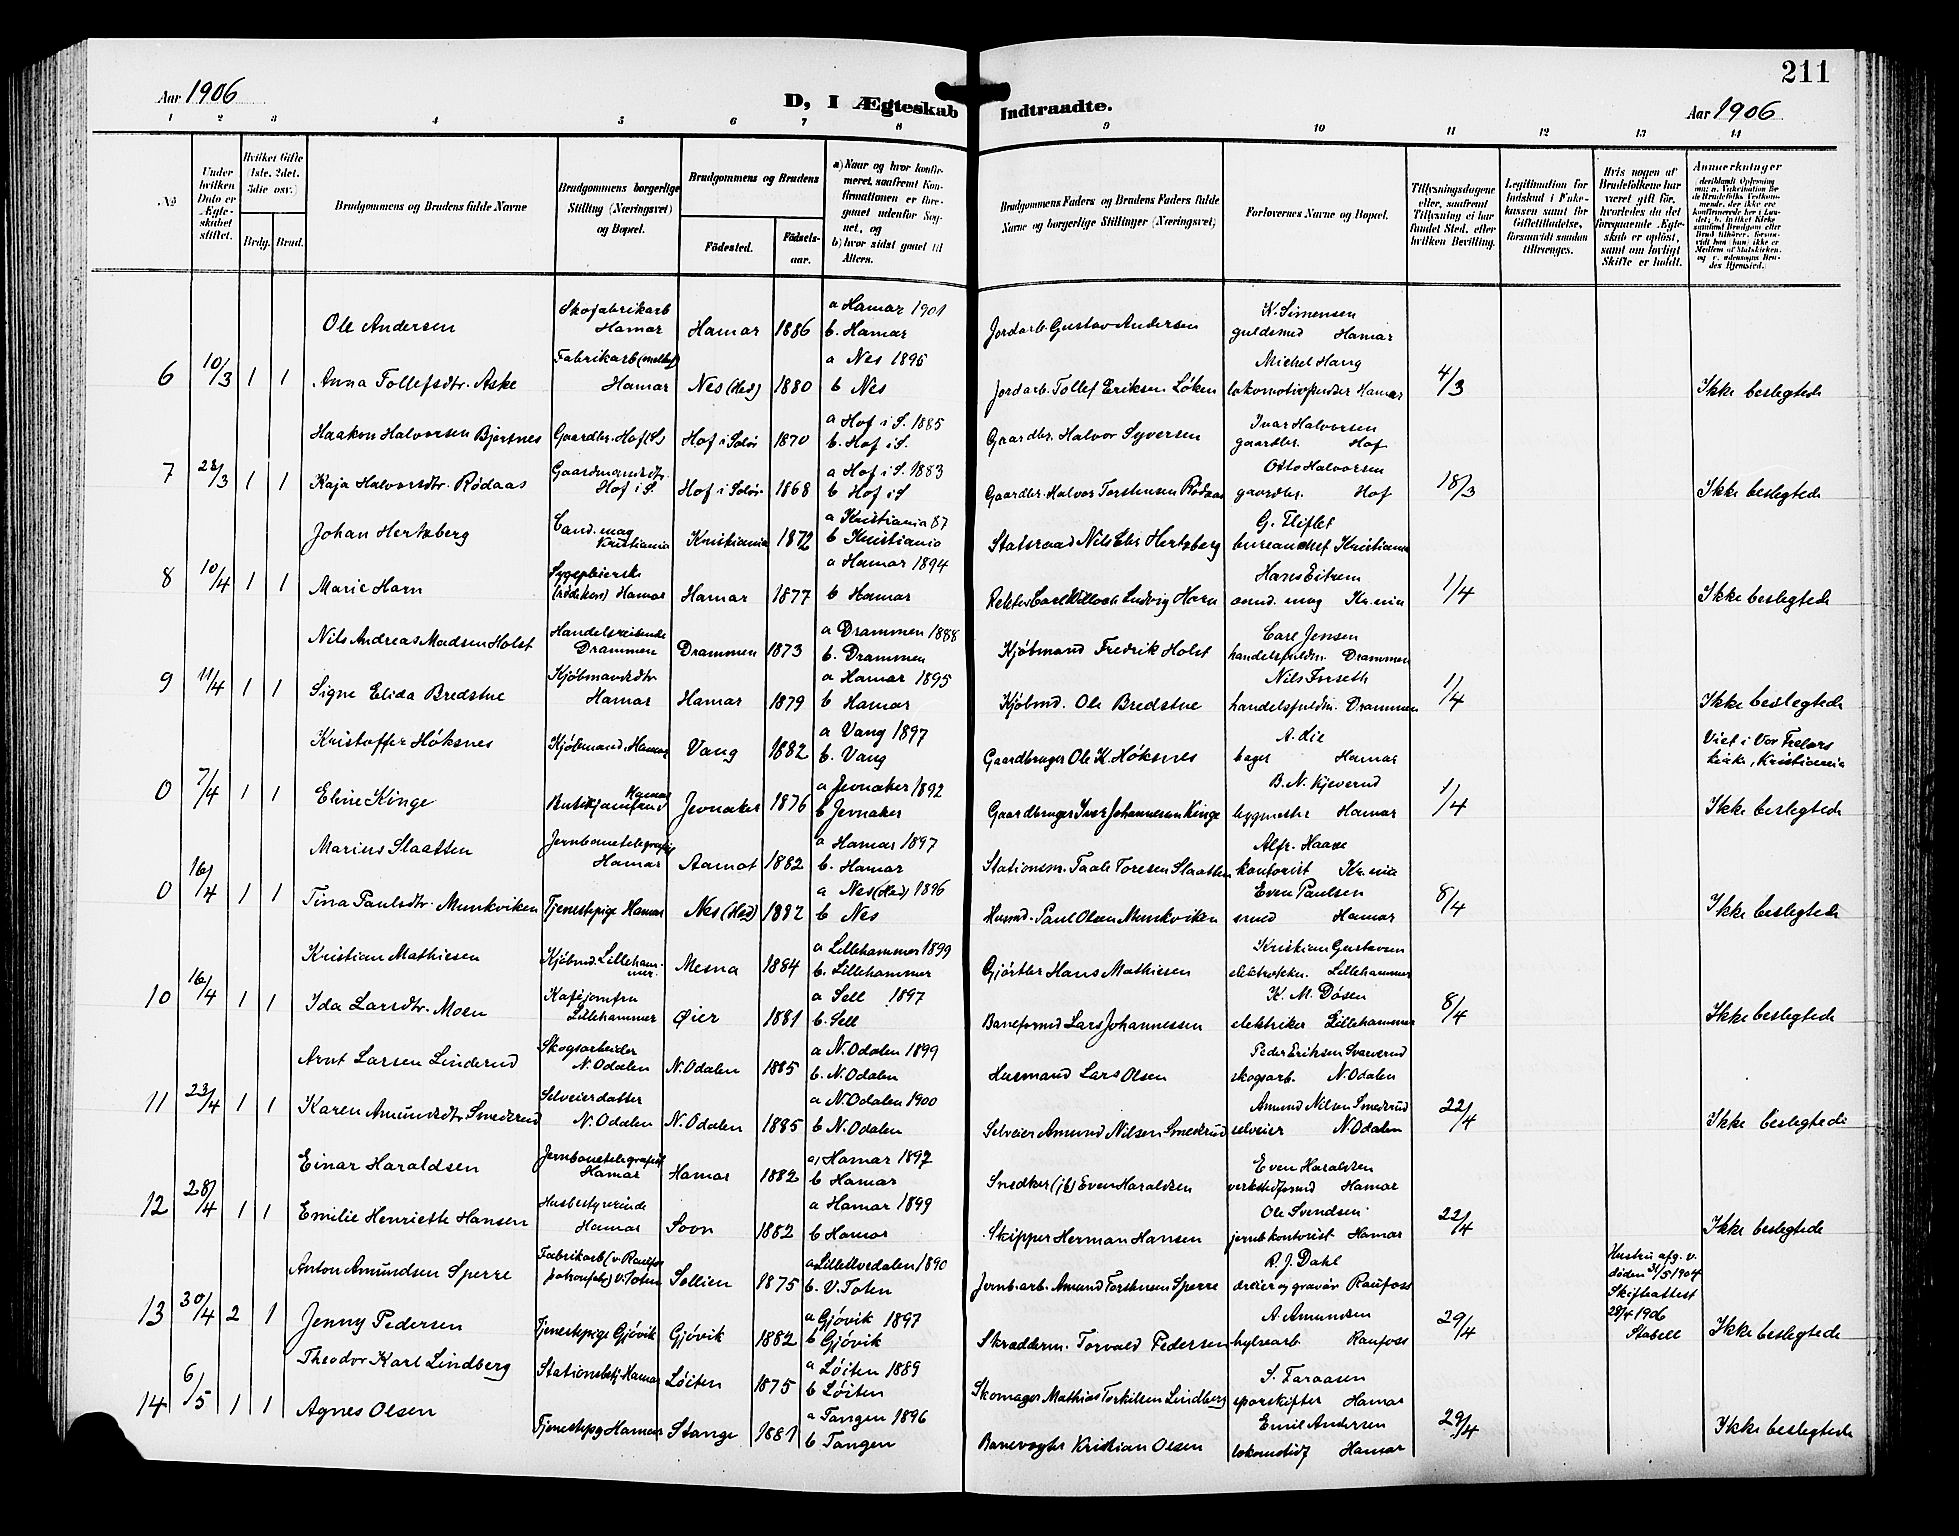 211
Aar 1906
D, I Ægteskab Indtraadte.
Aar 1906
1 2 3 4 5 6 7 8 9 10 11 12 13 14
No
Under hvilken Dato er Ægteskabet stiftet.
Hvilket Gifte (1ste, 2det, 3die osv.)
Brdg. Brud.
Brudgommens og Brudens fulde Navne
Brudgommens borgerlige Stilling (Næringsvei) og Bopæl.
Brudgommens og Brudens
Födested.
Födselsaar.
a) Naar og hvor konfirmeret, saafremt Konfirmationen er foregaaet udenfor Sognet, og
b) hvor sidst gaaet til Alters.
Brudgommens Faders og Brudens Faders fulde Navne og borgerlige Stillinger (Næringsvei)
Forlovernes Navne og Bopæl.
Tillysningsdagene eller, saafremt Tillysning ei har fundet Sted, efter hvilken Bevilling.
Legitimation for Indskud i Enkekassen samt for Giftetilladelse, forsaavidt saadan tiltrænges.
Hvis nogen af Brudefolkene har været gift för, hvorledes da det foregaaende Ægteskab er oplöst, samt om lovligt Skifte er holdt.
Anmerkninger
Ole Andersen Skofabrikarb Hamar Hamar 1886 a Hamar 1901 b. Hamar Jordarb. Gustav Andersen K. Simensen guldsmed Hamar
6 10/3 1 1 Anna Tollefsdtr. Aske Fabrikarb Hamar Nes (Hed) 1880 a Nes 1895 b Nes Jordarb. Tollef Eriksen Løken Michel Haug Hamar 4/3 Ikke beslegtede
Haakon Halvorsen Bjørsnes Gaardbr. Hof (S) Hof i Solør 1870 a Hof i S. 1885 b. Hof i S. Gaardbr. Halvor Syversen Ivar Halvorsen gaardbr. Hof
7 28/3 1 1 Kaja Halvorsdtr. Rødaas Gaardmandsdtr. Hof i S. Hof i Solør 1868 a Hof i S. 1883 b Hof i S Gaardbr. Halvor Torstensen Rødaas Otto Halvorsen gaardbr. Hof 18/3 Ikke beslegtede
Johan Hertzberg Cand. mag Kristiania Kristiania 1872 a Kristiania 87 b Kristiania Statsraad Nils Ebr. Hertzberg G. Fliflet bureauchef Kristiania
8 10/4 1 1 Marie Horn Sygepleierske Hamar Hamar 1877 a Hamar 1894 b Hamar Rektor Carl Ludvig Horn Hans Eitrem cand. mag Kr.nia 1/4 Ikke beslegtede
Nils Andreas Madsen Holst Handelsreisende Drammen Drammen 1873 a Drammen 1888 b. Drammen Kjøbmand Fredrik Holst Carl Jensen handelsfuldm. Drammen
9 11/4 1 1 Signe Elida Bredstue Kjøbmandsdtr Hamar Hamar 1879 a Hamar 1895 b Hamar Kjøbmd. Ole Bredstue Nils Forseth handelsfuldm. Drammen 1/4 Ikke beslegtede
Kristoffer Høksnes Kjøbmand. Hamar Vang 1882 a Vang 1897 b. Vang Gaardbruger Ole K. Høksnes A. Lie bager Hamar Viet i Vor Frelsers kirke, Kristiania
0 7/4 1 1 Eline Kinge Butikjomfru Hamar Jevnaker 1876 a Jevnaker 1892 b Jevnaker Gaardbruger Iver Johannesen Kinge B. N. Kjeverud byggmester Hamar 1/4 Ikke beslegtede
Marius Slaatten Jernbanetelegrafist Hamar Aamot 1882 a Hamar 1897 b. Hamar Stationsm. Taale Toresen Slaatten Alfr. Haase kontorist Kr.nia
0 16/4 1 1 Tina Paulsdtr. Munkviken Tjenestepige Hamar Nes (Hed) 1882 a Nes (Hed) 1896 b Nes Husmd. Paul Olsen Munkviken Even Paulsen smed Hamar 8/4 Ikke beslegtede
Kristian Mathiesen Kjøbmd. Lillehammer. Mesna 1884 a Lillehammer 1899 b. Lillehammer Gjørtler Hans Mathiesen Kristian Gustavsen Lillehammer
10 16/4 1 1 Ida Larsdtr. Moen Kaféjomfru Lillehammer Øier 1881 a Sell 1897 b. Sell Baneformd Lars Johannessen K. M. Døsen elektriker Lillehammer 8/4 Ikke beslegtede
Arnt Larsen Linderud Skogsarbeider N. Odalen N. Odalen 1885 a N. Odalen 1899 b. N. Odalen Husmand Lars Olsen Peder Eriksen Svarverud skogsarb. N. Odalen
11 23/4 1 1 Karen Amundsdtr Smederud Selveierdatter N. Odalen N. Odalen 1885 a N. Odalen 1900 b N. Odalen Selveier Amund Nilsen Smedrud Amund Nilsen Smedrud selveier N. Odalen 22/4 Ikke beslegtede
Einar Haraldsen Jernbanetelegrafist Hamar Hamar 1882 a) Hamar 1897 b Hamar Snedker (jb) Even Haraldsen Even Haraldsen verkstedformd Hamar
12 28/4 1 1 Emilie Henriette Hansen Husbestyrerinde Hamar Sovn 1882 a Hamar 1899 b Hamar Skipper Herman Hansen Ole Svendsen jernb. kontorist Hamar 22/4 Ikke beslegtede
Anton Amundsen Sperre Fabrikarb (v. Raufos Patronfabr) V. Toten Sollien 1875 a Lilleelvedalen 1890 b. V. Toten Jernb. arb. Amund Torstensen Sperre R. J. Dahl dreier og gravør Raufoss Hustru afg. v. døden 31/5 1904 Skifteattest 28/4 1906 Stabell
13 30/4 2 1 Jenny Pedersen Tjenestepige Gjøvik Gjøvik 1882 a Gjøvik 1897 b Gjøvik Skrædderm. Torvald Pedersen A. Amundsen hylsearb Raufoss 29/4 Ikke beslegtede
Theodor Karl Lindberg Stationsbetj. Hamar Løiten 1875 a Løiten 1889 b Løiten Skomager Mathias Torkilsen Lindberg S. Faraasen sporskifter Hamar
14 6/5 1 1 Agnes Olsen Tjenestepg Hamar Stange 1881 a Tangen 1896 b Tangen Banevogter Kristian Olsen Emil Andersen lokomotivf Hamar 29/4 Ikke beslegtede